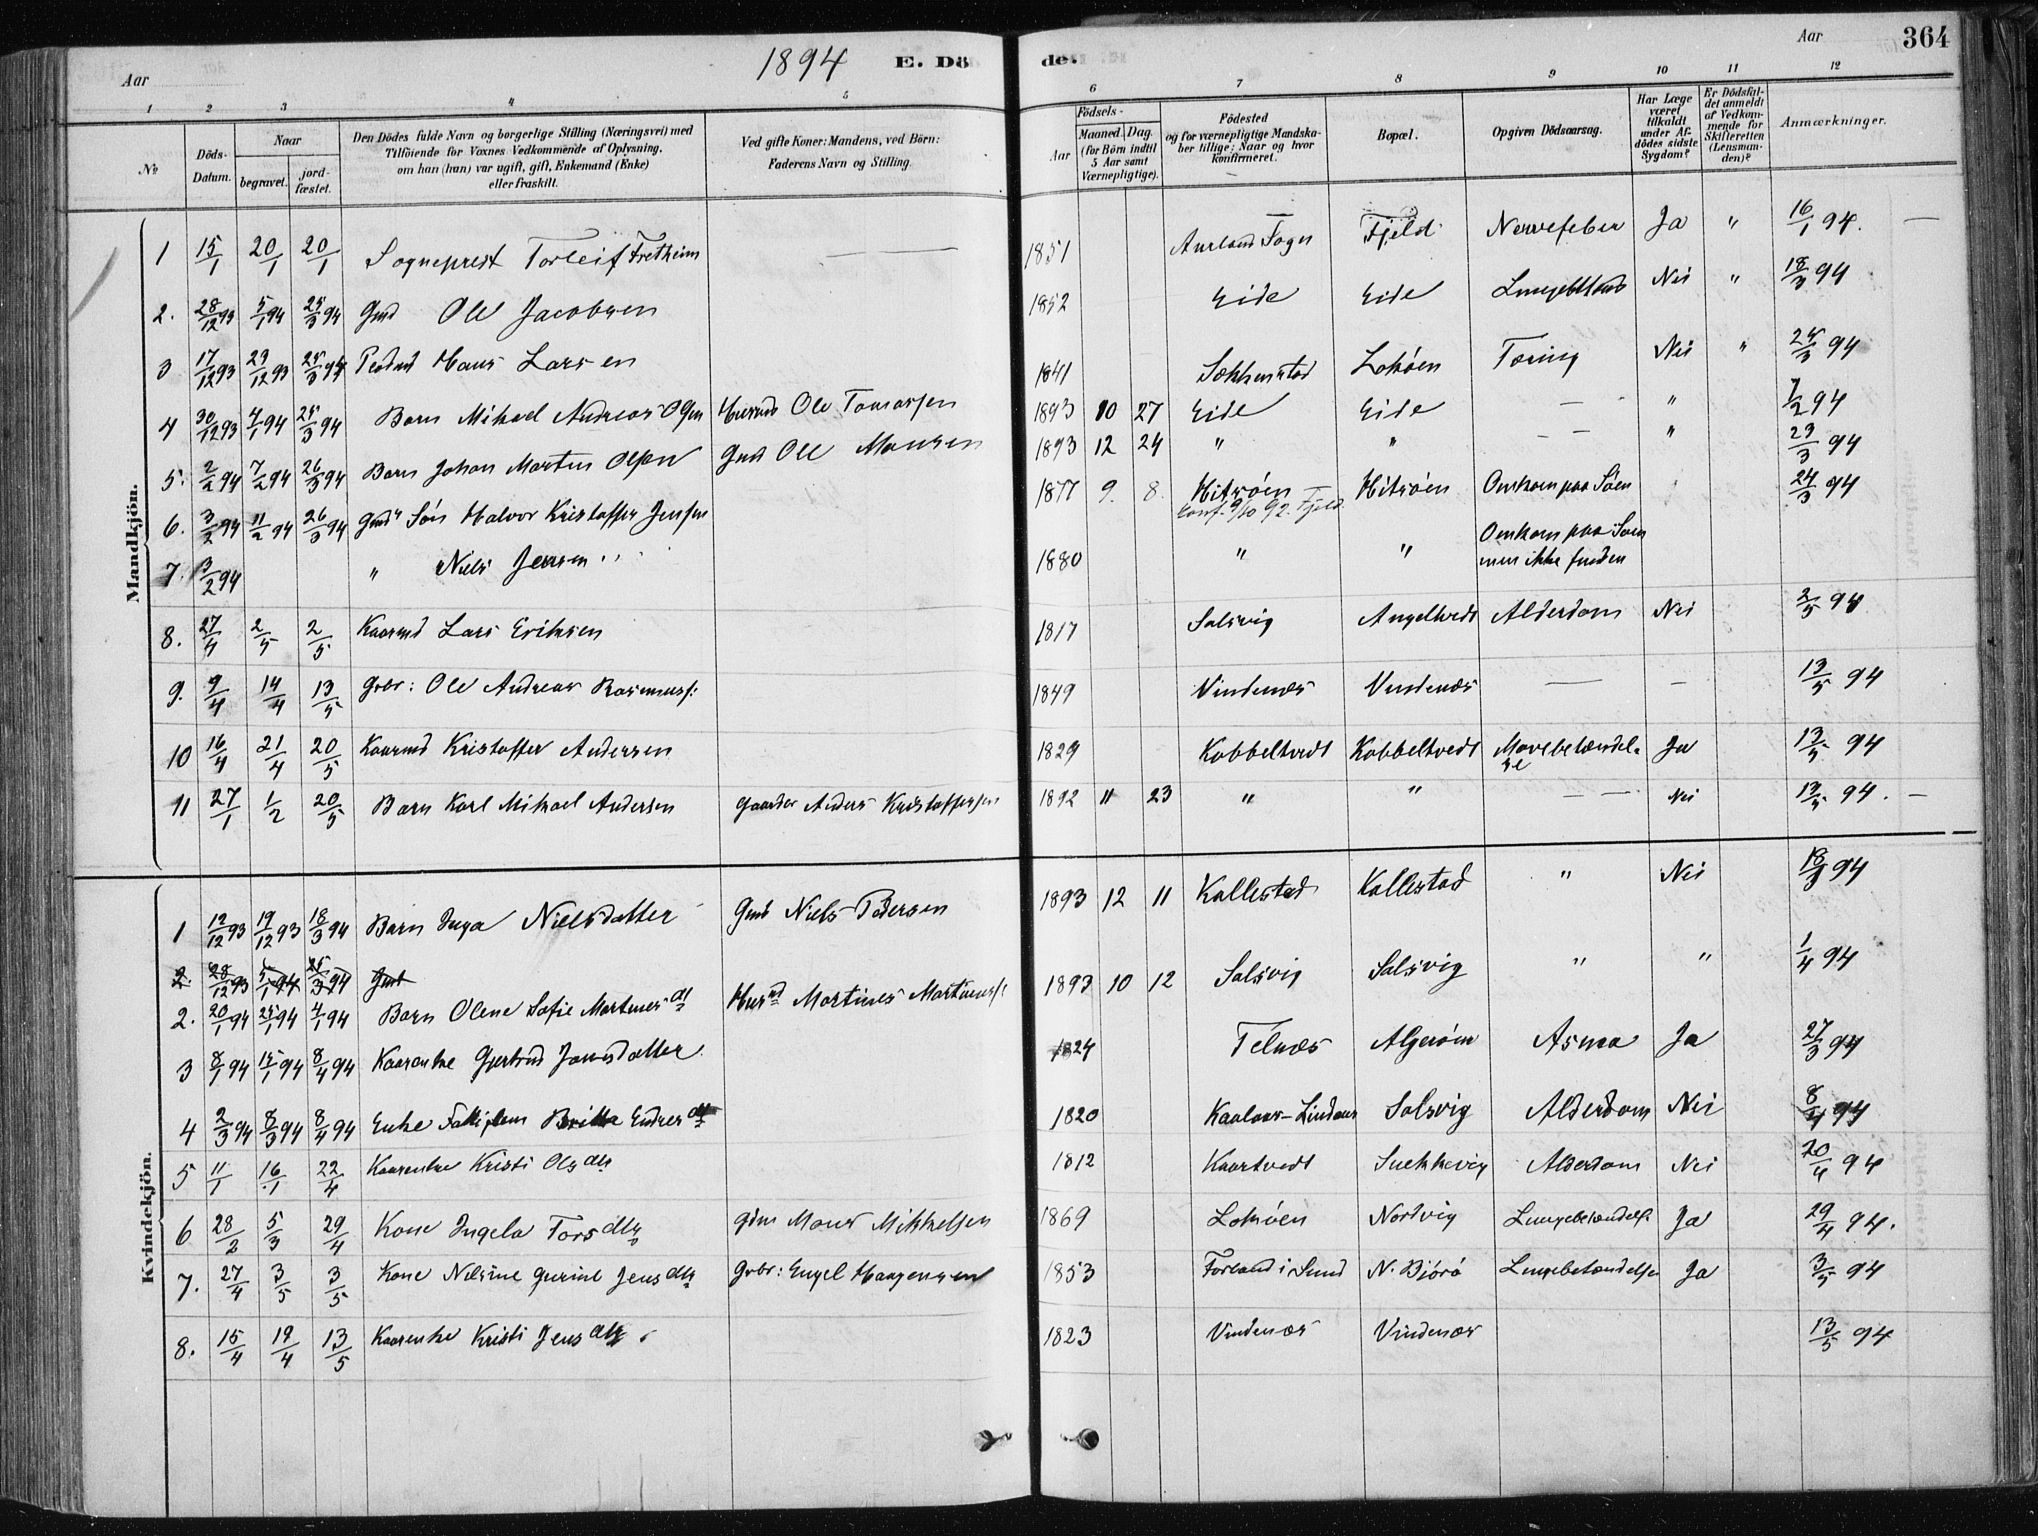 1894 E. Döde. Aar 364
Aar
1 2 3 4 5 6 7 8 9 10 11 12
№
Döds-Datum.
Naar
begravet.
jordfæstet.
Den Dödes fulde Navn og borgerlige Stilling (Næringsvei) med
Tilföiende for Voxnes Vedkommende af Oplysning,
om han (hun) var ugift, gift, Enkemand (Enke)
eller fraskilt.
Ved gifte Koner: Mandens, ved Börn:
Faderens Navn og Stilling.
Födsels-
Aar
Maaned. Dag.
(for Börn indtil
5 Aar samt
Værnepligtige).
Födested
og for værnepligtige Mandskaber tillige: Naar og hvor
konfirmeret.
Bopæl.
Opgiven Dödsaarsag.
Har Læge
været
tilkaldt
under Afdödes sidste
Sygdom?
Er Dödsfaldet anmeldt
af Vedkommende for
Skifteretten
(Lensmanden)?
Anmærkninger.
Mandkjön.
1 15/1 20/1 20/1 Sogneprest Torleif Fretheim 1851 Aurland Sogn Fjeld Nervefeber Ja " 16/1 94.
2. 28/12 93 5/1 94 25/3 94 Gmd Ole Jacobsen 1852 Eide Eide Nei " 18/3 94
3 17/12 93 23/12 93 25/3 94 Hans Larsen 1841 Sekkenstad Lokøen Tæring Nei " 25/3 94
4 30/12 93 4/1 94 25/3 94 Barn Mikael Andreas Olsen Husmd Ole Tomassen 1893 10 27 Eide Eide — " 7/2 94
5. 2/2 94 7/2 94 26/3 94 Barn Johan Martin Olsen Gmd Ole Monsen 1893 12 24 " " — — " 23/3 94
6. 3/2 94 11/2 94 26/3 94 Gmds Søn Halvor Kristoffer Jensen 1877 9. 8. Hitsøen Hitsøen Omkom paa Søen 24/3 94
Conf. 9/10 92. Fjeld
7. 3/2 94 " Niels Jensen 1880 " " Omkom paa Søen
men ikke funden
8. 27/4 2/5 2/5 Kaarmd Lars Eriksen 1817 Solsvig Angeltvedt Alderdom Nei 2/5 94
9. 9/4 14/4 13/5 Gvbr: Ole Andreas Rasmuss: 1849 Vindenæs Vindenæs — — 13/5 94
10 16/4 21/4 20/5 Kaarmd Kristoffer Andersen 1829 Kobbeltvedt Kobbeltvedt Mavebetændelse Ja 13/5 94
11 27/1 1/2 20/5 Barn Karl Mikael Andersen Gaardbr Anders Kristoffersen 1892 11 23 " " — — Nei 13/5 94. —
Kvindekjön.
1 12/12 93 19/12 93 18/3 94 Barn Inga Nielsdatter Gmd Niels Pedersen 1893 12 11 Kallestad Kallestad " Nei 18/3 94
2. 28/12 93 5/1 94 25/3 94 Gmd
2. 20/1 94 25/1 94 4/1 94 Barn Olene Sofie Martines dtr Husmd Martines Martinuss: 1893 10 12 Solsvig Solsvig " " 1/4 94
3 8/1 94 15/1 94 8/4 94 Kaarenke Gjertrud Jonsdatter 1824 Telnæs Algerøen Asma Ja 27/3 94
4 2/3 94 8/3 94 8/4 94 Enke Fattiglem Britha Endresdtr 1820 Kaalaas-Lindaas Solsvig Alderdom Nei 8/4 94
5 11/1 16/1 22/4 Kaarenke Kristi Olsdtr 1812 Kaartvedt Snekkevig Alderdom Nei 20/4 94
6 28/2 5/3 29/4 Kone Ingela Torsdtr Gdm Mons Mikkelsen 1869 Lokøen Nordvig Lungebetændels: Ja 29/4 94.
7. 27/4 3/5 3/5 Kone Nilsine Gurine Jensdtr Gvbr: Engel Haagensen 1853 Forland i Sund N. Bjórö Lungebetændelse Ja 3/5 94
8. 15/4 19/4 13/5 Kaarenke Kristi Jensdtr 1823 Vindenæs Vindenæs 13/5 94